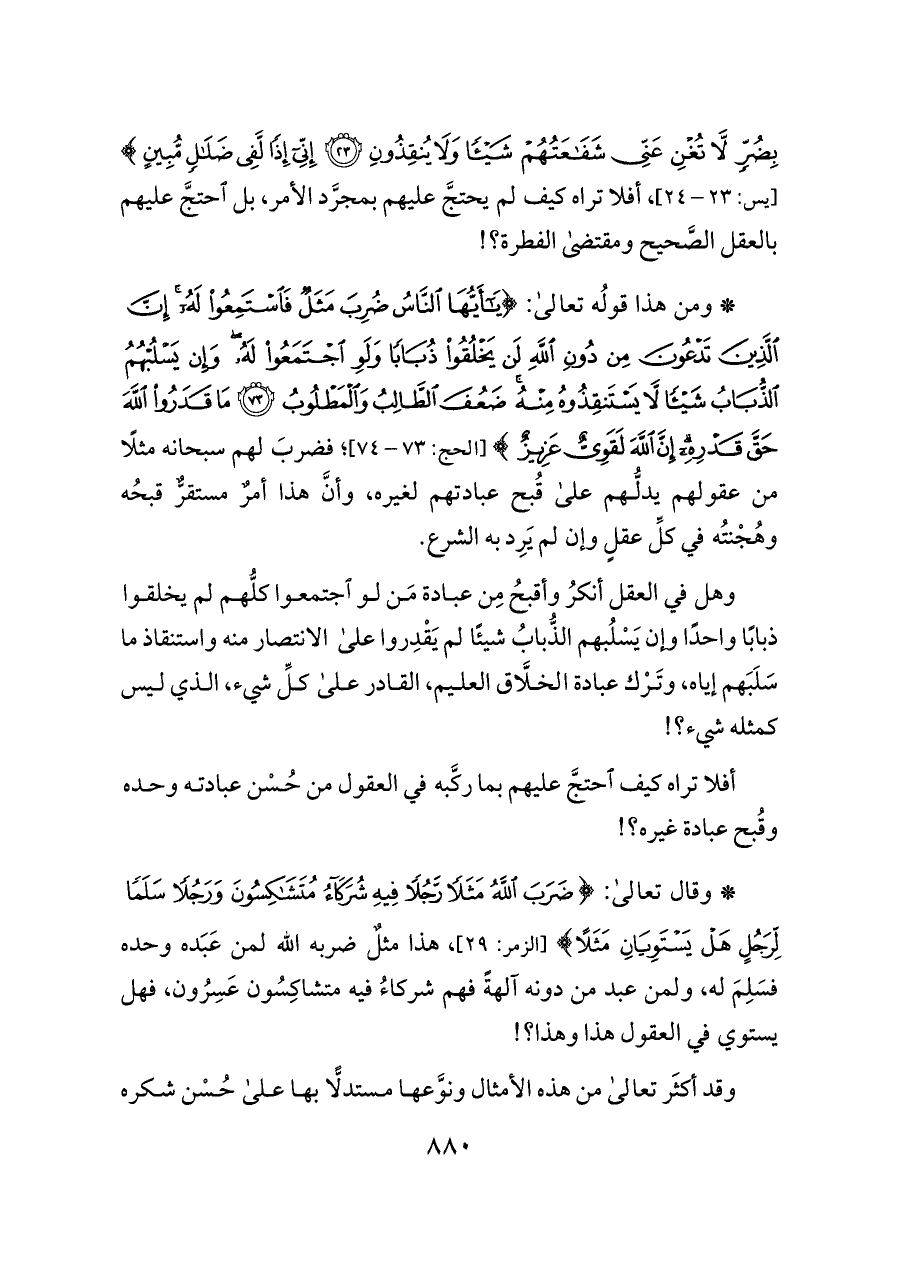 بِضُرٍّ لَّا تُغْنِ عَنِّى شَفَـٰعَتُهُمْ شَيْـًٔا وَلَا يُنقِذُونِ ﴿٢٣﴾ إِنِّىٓ إِذًا لَّفِى ضَلَـٰلٍ مُّبِينٍ ﴾
[يس: ٢٣ – ٢٤]، أفلا تراه كيف لم يحتجَّ عليهم بمجرَّد الأمر، بل ٱحتجَّ عليهم
بالعقل الصَّحيح ومقتضىٰ الفطرة؟!
* ومن هذا قولُه تعالىٰ: ﴿يَـٰٓأَيُّهَا ٱلنَّاسُ ضُرِبَ مَثَلٌ فَٱسْتَمِعُوا۟ لَهُۥٓ ۚ إِنَّ
ٱلَّذِينَ تَدْعُونَ مِن دُونِ ٱللَّهِ لَن يَخْلُقُوا۟ ذُبَابًا وَلَوِ ٱجْتَمَعُوا۟ لَهُۥ ۖ وَإِن يَسْلُبْهُمُ
ٱلذُّبَابُ شَيْـًٔا لَّا يَسْتَنقِذُوهُ مِنْهُ ۚ ضَعُفَ ٱلطَّالِبُ وَٱلْمَطْلُوبُ ﴿٧٣﴾ مَا قَدَرُوا۟ ٱللَّهَ
حَقَّ قَدْرِهِۦٓ ۗ إِنَّ ٱللَّهَ لَقَوِىٌّ عَزِيزٌ ﴾ [الحج: ٧٣ – ٧٤]؛ فضربَ لهم سبحانه مثلًا
من عقولهم يدلُّهم علىٰ قُبح عبادتهم لغيره، وأنَّ هذا أمرٌ مستقرٌّ قبحُه
وهُجْنتُه في كلِّ عقلٍ وإن لم يَرِد به الشرع.
وهل في العقل أنكرُ وأقبحُ مِن عبادة مَن لو ٱجتمعوا كلُّهم لم يخلقوا
ذبابًا واحدًا وإن يَسْلُبهم الذُّبابُ شيئًا لم يَقْدِروا علىٰ الانتصار منه واستنقاذ ما
سَلَبَهم إياه، وتَرْك عبادة الخلَّاق العليم، القادر علىٰ كلِّ شيء، الذي ليس
كمثله شيء؟!
أفلا تراه كيف ٱحتجَّ عليهم بما ركَّبه في العقول من حُسْن عبادته وحده
وقُبح عبادة غيره؟!
* وقال تعالىٰ: ﴿ ضَرَبَ ٱللَّهُ مَثَلًا رَّجُلًا فِيهِ شُرَكَآءُ مُتَشَـٰكِسُونَ وَرَجُلًا سَلَمًا
لِّرَجُلٍ هَلْ يَسْتَوِيَانِ مَثَلًا﴾ [الزمر: ٢٩]، هذا مثلٌ ضربه الله لمن عَبَده وحده
فسَلِمَ له، ولمن عبد من دونه آلهةً فهم شركاءُ فيه متشاكِسُون عَسِرُون، فهل
يستوي في العقول هذا وهذا؟!
وقد أكثَر تعالىٰ من هذه الأمثال ونوَّعها مستدلًّا بها علىٰ حُسْن شكره
٨٨٠